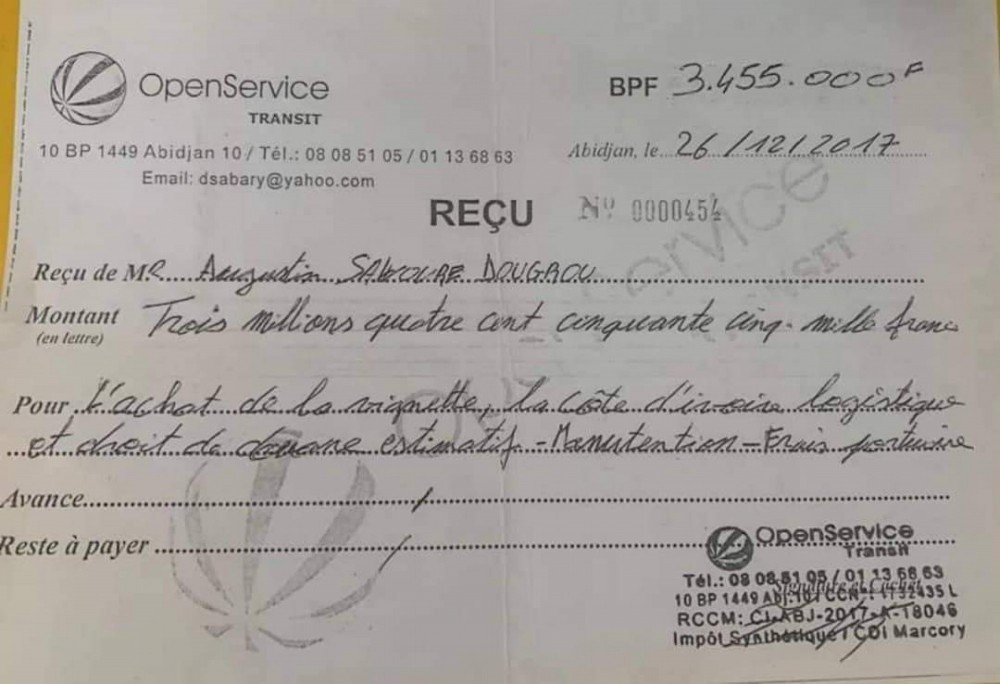 OpenService
TRANSIT
10 BP 1449 Abidjan 10 / Tél.: 08 08 51 05 / 01 13 68 63
Email: dsabary@yahoo.com
BPF 3.455.000F
Abidjan, le 26/12/2017
REÇU Nº 0000454
Reçu de MR Augustin DOUGROU
Montant Trois millions quatre cent cinquante cinq-mille franc
(en lettre)
Pour L'achat de la vignette, la côte d'ivoire logistique
et droit de douane estimatif - Manutention - Frais portuaire
Avance /
Reste à payer /
OpenService
Transit
Tél.: 08 08 51 05 / 01 13 68 63
Signature et Cachet
10 BP 1449 Abj. 10 / CCN°: 1732435 L
RCCM: CI-ABJ-2017-A-18046
Impôt Synthétique / CDI Marcory
OpenService
TRANSIT